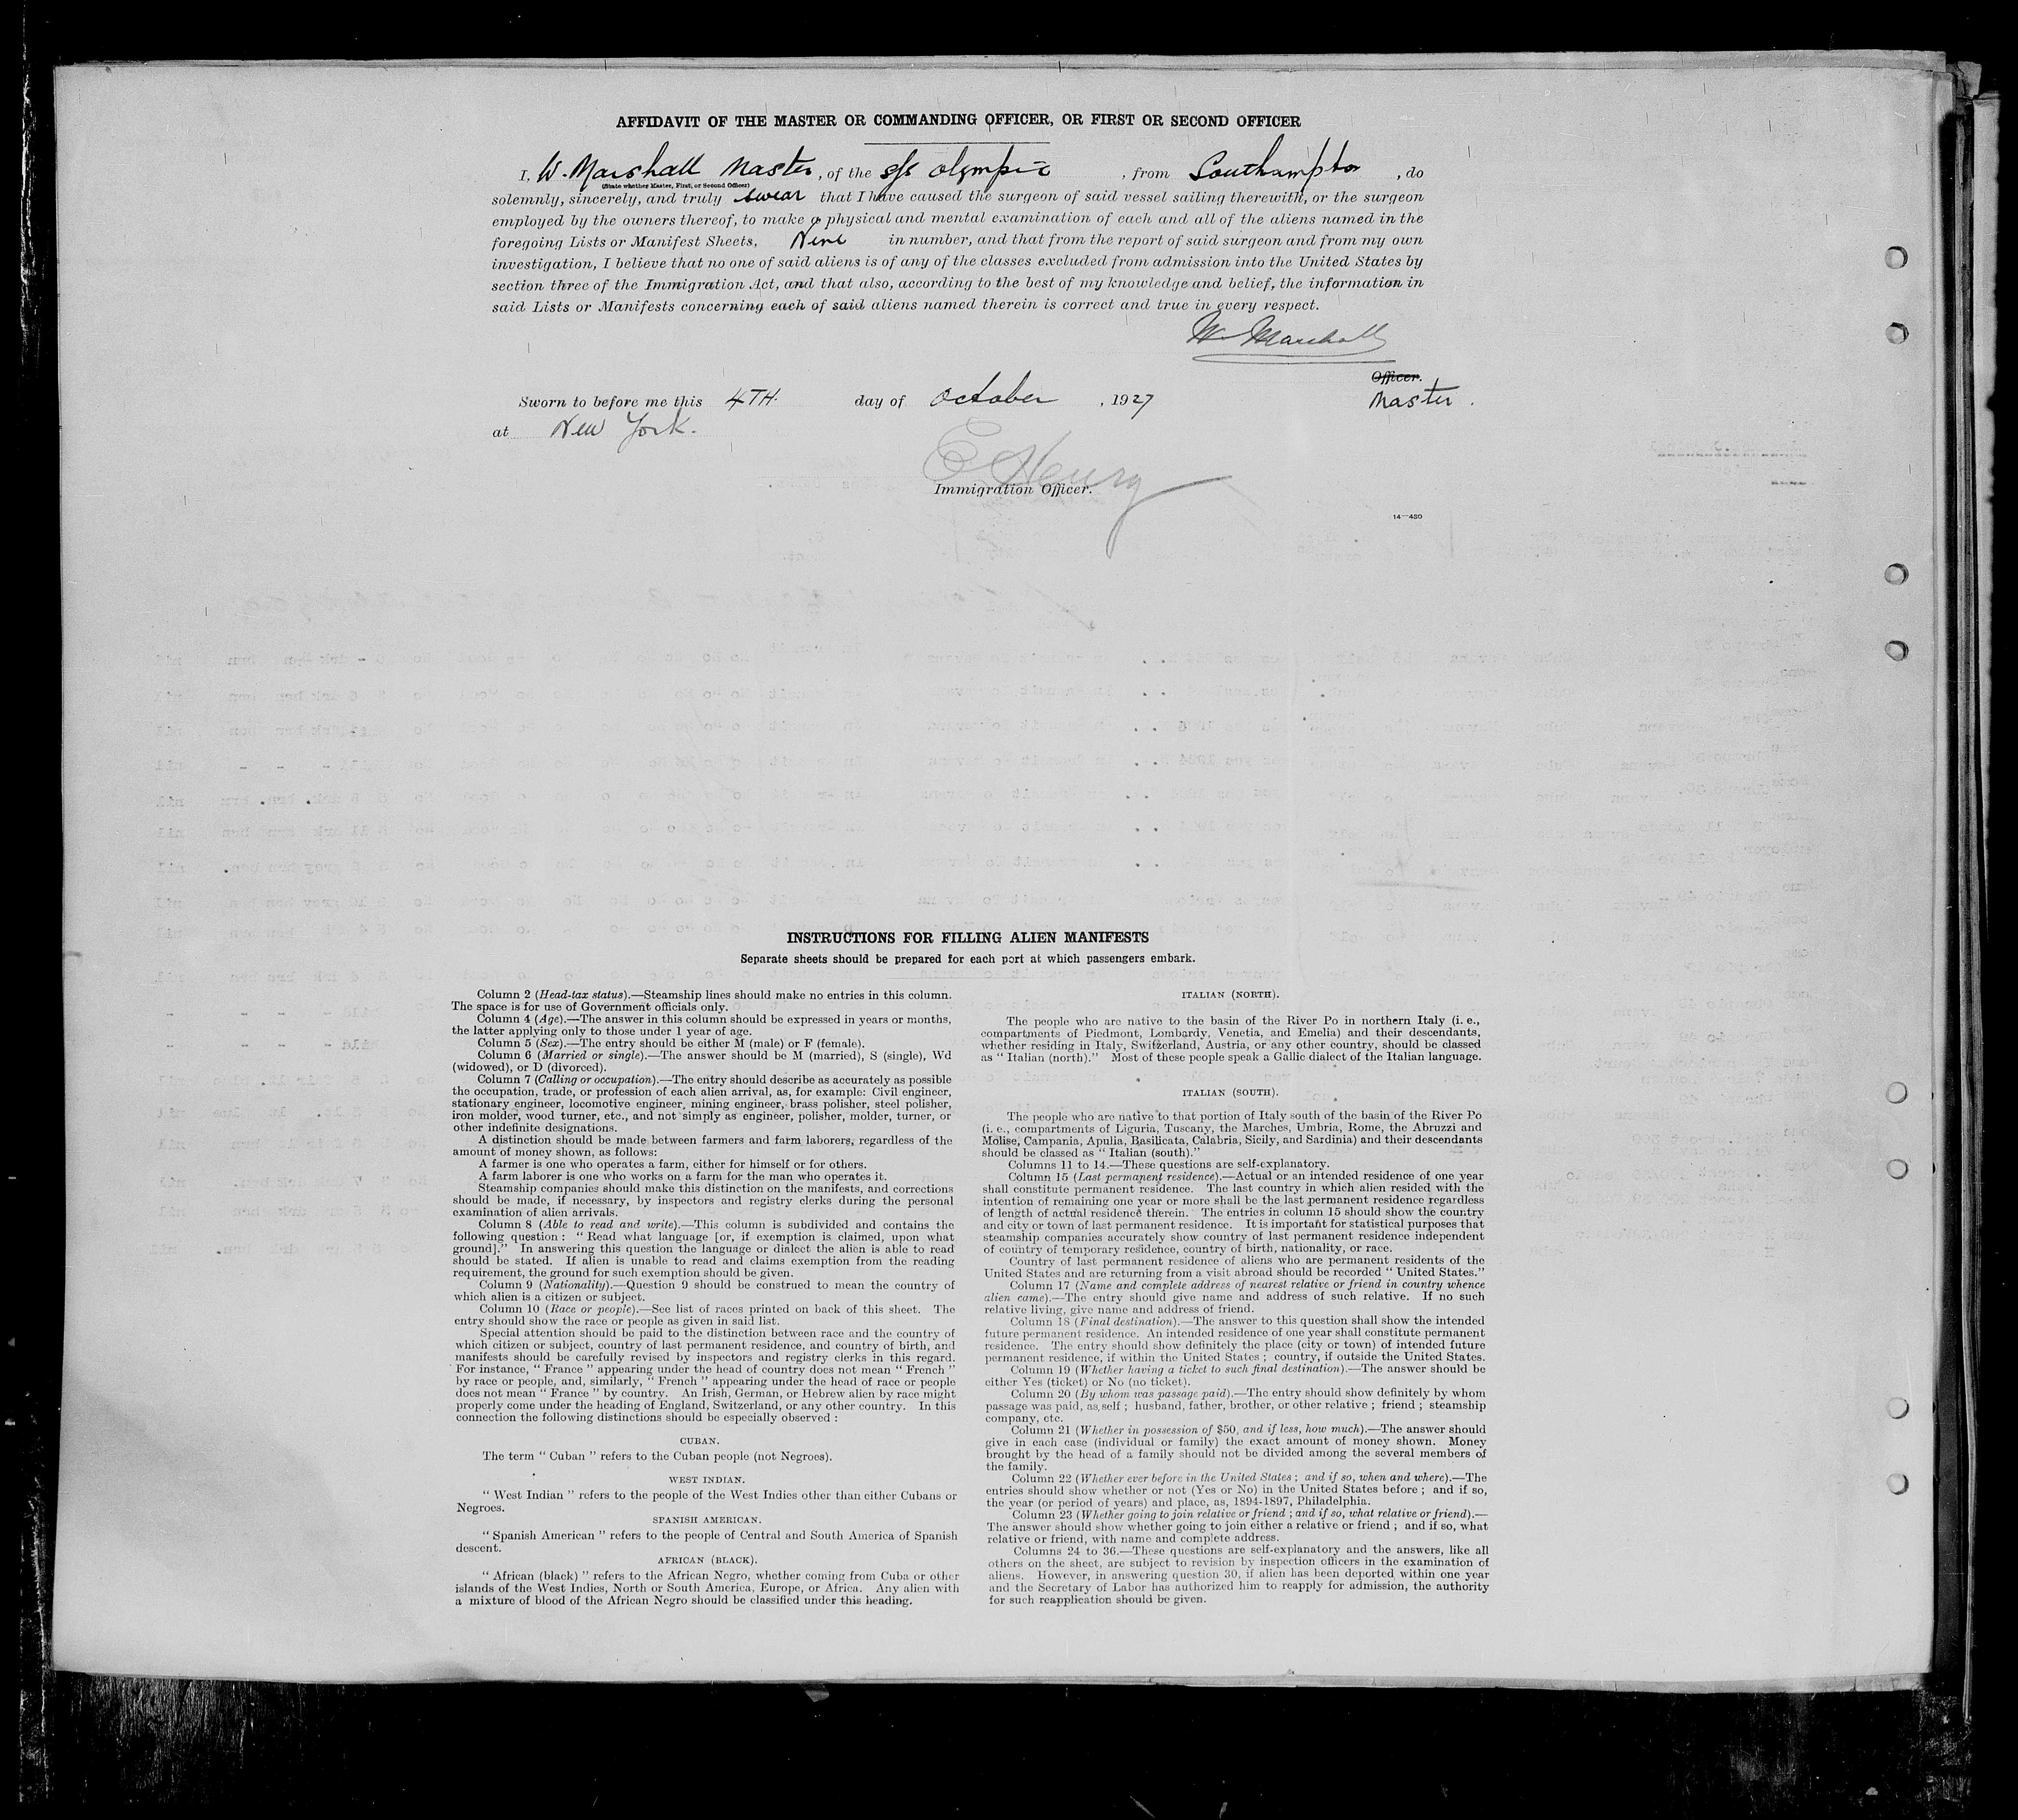 AFFIDAVIT OF THE MASTER OR COMMANDING OFFICER, OR FIRST OR SECOND OFFICER
I, W. Marshall Master, of the s/s Olympic, from Southampton, do
(State whether Master, First, or Second Officer)
solemnly, sincerely, and truly swear that I have caused the surgeon of said vessel sailing therewith, or the surgeon
employed by the owners thereof, to make a physical and mental examination of each and all of the aliens named in the
foregoing Lists or Manifest Sheets, Nine in number, and that from the report of said surgeon and from my own
investigation, I believe that no one of said aliens is of any of the classes excluded from admission into the United States by
section three of the Immigration Act, and that also, according to the best of my knowledge and belief, the information in
said Lists or Manifests concerning each of said aliens named therein is correct and true in every respect.
W Marshall
Officer.
Sworn to before me this 4TH. day of October, 1927 Master.
at New York.
E Henry
Immigration Officer.
14—430
INSTRUCTIONS FOR FILLING ALIEN MANIFESTS
Separate sheets should be prepared for each port at which passengers embark.
Column 2 (Head-tax status).—Steamship lines should make no entries in this column.
The space is for use of Government officials only.
Column 4 (Age).—The answer in this column should be expressed in years or months,
the latter applying only to those under 1 year of age.
Column 5 (Sex).—The entry should be either M (male) or F (female).
Column 6 (Married or single).—The answer should be M (married), S (single), Wd
(widowed), or D (divorced).
Column 7 (Calling or occupation).—The entry should describe as accurately as possible
the occupation, trade, or profession of each alien arrival, as, for example: Civil engineer,
stationary engineer, locomotive engineer, mining engineer, brass polisher, steel polisher,
iron molder, wood turner, etc., and not simply as engineer, polisher, molder, turner, or
other indefinite designations.
A distinction should be made between farmers and farm laborers, regardless of the
amount of money shown, as follows:
A farmer is one who operates a farm, either for himself or for others.
A farm laborer is one who works on a farm for the man who operates it.
Steamship companies should make this distinction on the manifests, and corrections
should be made, if necessary, by inspectors and registry clerks during the personal
examination of alien arrivals.
Column 8 (Able to read and write).—This column is subdivided and contains the
following question: “Read what language [or, if exemption is claimed, upon what
ground].” In answering this question the language or dialect the alien is able to read
should be stated. If alien is unable to read and claims exemption from the reading
requirement, the ground for such exemption should be given.
Column 9 (Nationality).—Question 9 should be construed to mean the country of
which alien is a citizen or subject.
Column 10 (Race or people).—See list of races printed on back of this sheet. The
entry should show the race or people as given in said list.
Special attention should be paid to the distinction between race and the country of
which citizen or subject, country of last permanent residence, and country of birth, and
manifests should be carefully revised by inspectors and registry clerks in this regard.
For instance, “France” appearing under the head of country does not mean “French”
by race or people, and, similarly, “French” appearing under the head of race or people
does not mean “France” by country. An Irish, German, or Hebrew alien by race might
properly come under the heading of England, Switzerland, or any other country. In this
connection the following distinctions should be especially observed:
CUBAN.
The term “Cuban” refers to the Cuban people (not Negroes).
WEST INDIAN.
“West Indian” refers to the people of the West Indies other than either Cubans or
Negroes.
SPANISH AMERICAN.
“Spanish American” refers to the people of Central and South America of Spanish
descent.
AFRICAN (BLACK).
“African (black)” refers to the African Negro, whether coming from Cuba or other
islands of the West Indies, North or South America, Europe, or Africa. Any alien with
a mixture of blood of the African Negro should be classified under this heading.
ITALIAN (NORTH).
The people who are native to the basin of the River Po in northern Italy (i. e.,
compartments of Piedmont, Lombardy, Venetia, and Emelia) and their descendants,
whether residing in Italy, Switzerland, Austria, or any other country, should be classed
as “Italian (north).” Most of these people speak a Gallic dialect of the Italian language.
ITALIAN (SOUTH).
The people who are native to that portion of Italy south of the basin of the River Po
(i. e., compartments of Liguria, Tuscany, the Marches, Umbria, Rome, the Abruzzi and
Molise, Campania, Apulia, Basilicata, Calabria, Sicily, and Sardinia) and their descendants
should be classed as “Italian (south).”
Columns 11 to 14.—These questions are self-explanatory.
Column 15 (Last permanent residence).—Actual or an intended residence of one year
shall constitute permanent residence. The last country in which alien resided with the
intention of remaining one year or more shall be the last permanent residence regardless
of length of actual residence therein. The entries in column 15 should show the country
and city or town of last permanent residence. It is important for statistical purposes that
steamship companies accurately show country of last permanent residence independent
of country of temporary residence, country of birth, nationality, or race.
Country of last permanent residence of aliens who are permanent residents of the
United States and are returning from a visit abroad should be recorded “United States.”
Column 17 (Name and complete address of nearest relative or friend in country whence
alien came).—The entry should give name and address of such relative. If no such
relative living, give name and address of friend.
Column 18 (Final destination).—The answer to this question shall show the intended
future permanent residence. An intended residence of one year shall constitute permanent
residence. The entry should show definitely the place (city or town) of intended future
permanent residence, if within the United States; country, if outside the United States.
Column 19 (Whether having a ticket to such final destination).—The answer should be
either Yes (ticket) or No (no ticket).
Column 20 (By whom was passage paid).—The entry should show definitely by whom
passage was paid, as, self; husband, father, brother, or other relative; friend; steamship
company, etc.
Column 21 (Whether in possession of $50, and if less, how much).—The answer should
give in each case (individual or family) the exact amount of money shown. Money
brought by the head of a family should not be divided among the several members of
the family.
Column 22 (Whether ever before in the United States; and if so, when and where).—The
entries should show whether or not (Yes or No) in the United States before; and if so,
the year (or period of years) and place, as, 1894-1897, Philadelphia.
Column 23 (Whether going to join relative or friend; and if so, what relative or friend).—
The answer should show whether going to join either a relative or friend; and if so, what
relative or friend, with name and complete address.
Columns 24 to 36.—These questions are self-explanatory and the answers, like all
others on the sheet, are subject to revision by inspection officers in the examination of
aliens. However, in answering question 30, if alien has been deported within one year
and the Secretary of Labor has authorized him to reapply for admission, the authority
for such reapplication should be given.